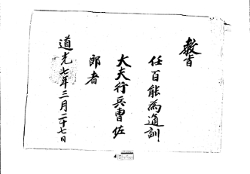 敎旨
任百能為通訓
大夫行兵曹佐
郎者
道光七年三月二十七日